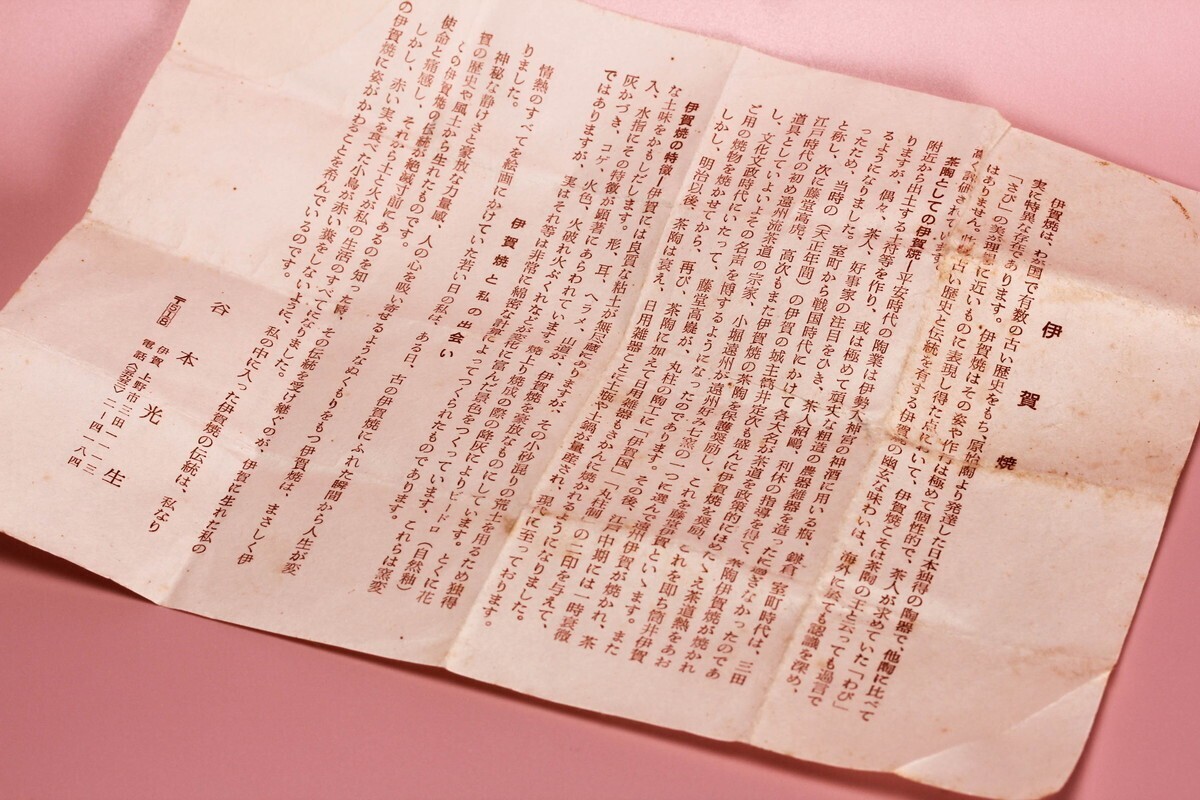 伊賀焼
伊賀焼は、わが国で有数の古い歴史をもち、原始陶より発達した日本独得の陶器で、他陶に比べて
実に特異な存在であります。伊賀焼はその姿や作行は極めて個性的で、茶人が求めていた「わび」
「さび」の美の理
に近いものに表現し得た点に於いて、伊賀焼こそは茶陶の王と云っても過言で
はありません。
古い歴史と伝統を有する伊賀
の幽玄な味わいは、海外に於ても認識を深め、
高く評価されて
います。
茶陶としての伊賀焼―平安時代の陶業は伊勢大神宮の神酒に用いる瓶、鎌倉、室町時代は、三田
附近から出土する
等を作り、或は極めて頑丈な粗造の農器雑器を造ったに過ぎなかったのであ
りますが、偶々、茶人、好事家の注目をひき、茶人紹鷗、利休の指導を得て、茶陶伊賀焼が焼かれ
るようになりました。室町から戦国時代にかけて各大名が茶道を政策的にほめたたえ茶道熱をあお
ったため、当時の(天正年間)の伊賀の城主筒井定次も盛んに伊賀焼を奨励、これを即ち筒井伊賀
と称し、次に藤堂高虎、高次もまた伊賀焼の茶陶を保護奨励し、これを藤堂
江戸時代の初め遠州流茶道の宗家、小堀遠州は遠州好み
遠州伊賀といいます。また
道具としていよいよその名声を博するようになったのであります。その後、
中期には一時衰微
し、文化文政時代にいたって、藤堂高嶷が、丸柱の窯の一つに選んで
の二印を与えて、
ご用の焼物を焼かせてから、再び、茶陶に加えて日用雑器もさかんに焼かれるようになりました。
しかし、明治以後、茶陶は衰え、日用雑器ことに土瓶や土鍋が量産され、現
に至っております。
伊賀焼の特徴―伊賀には良質な粘土が無尽蔵にありますが、その小砂混りの荒土を用るため独得
な土味をかもしだします。形、耳、ヘラメ、山道が
焼成の際の降灰によりビードロ(自然釉)
入、水指にその特徴が顕著にあらわれています。
灰かづき、コゲ、火色、火破れ火ぶくれなど変化に富んだ景色をつくっています。これらは窯変
ではありますが、実はそれ等は非常に綿密な計算によってつくられたものであります。
伊賀焼と私の出会い
情熱のすべてを絵画にかけていた若い日の私は、ある日、古の伊賀焼にふれた瞬間から人生が変
りました。
神秘な静けさと豪放な力量感、人の心を吸い寄せるようなぬくもりをもつ伊賀焼は、まさしく伊
賀の歴史や風土から生れたものです。
この伊賀焼の伝統が絶滅寸前にあるのを知った時、その伝統を受け継ぐのが、伊賀に生れた私の
使命と痛感し、それから土と火が私の生活のすべてになりました。
しかし、赤い実を食べた小鳥が赤い糞をしないように、私の中に入った伊賀焼の伝統は、私なり
の伊賀焼に姿がかわることを希んでいるのです。
谷本光生
〒518
伊賀上野市三田二一二三
電話〈上野〉二一四一八四